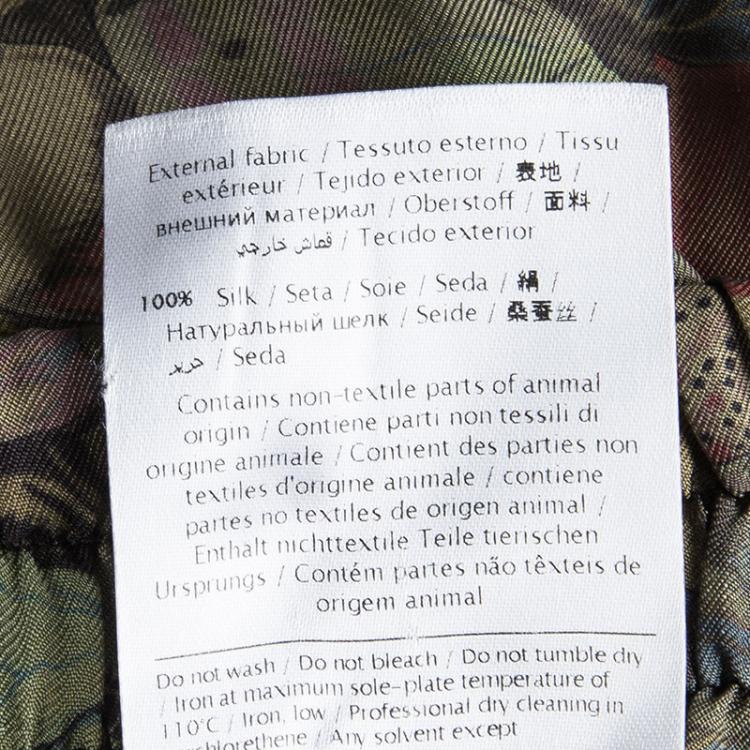 External fabric / Tessuto esterno / Tissu
extérieur / Tejido exterior / 表地 /
внешний материал / Oberstoff / 面料 /
قماش خارجي / Tecido exterior
100% Silk / Seta / Soie / Seda / 絹 /
Натуральный шелк / Seide / 桑蚕丝 /
حرير / Seda
Contains non-textile parts of animal
origin / Contiene parti non tessili di
origine animale / Contient des parties non
textiles d'origine animale / contiene
partes no textiles de origen animal /
Enthält nichttextile Teile tierischen
Ursprungs / Contém partes não têxteis de
origem animal
Do not wash / Do not bleach / Do not tumble dry
/ Iron at maximum sole-plate temperature of
110°C / Iron, low / Professional dry cleaning in
chlorethene / Any solvent except